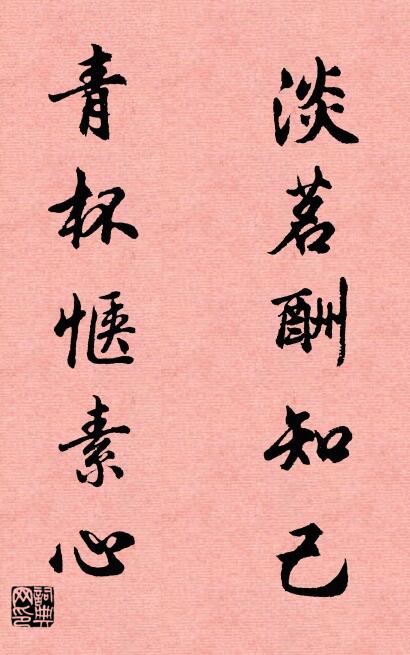 淡茗酬知己
青杯惬素心
詞典网印